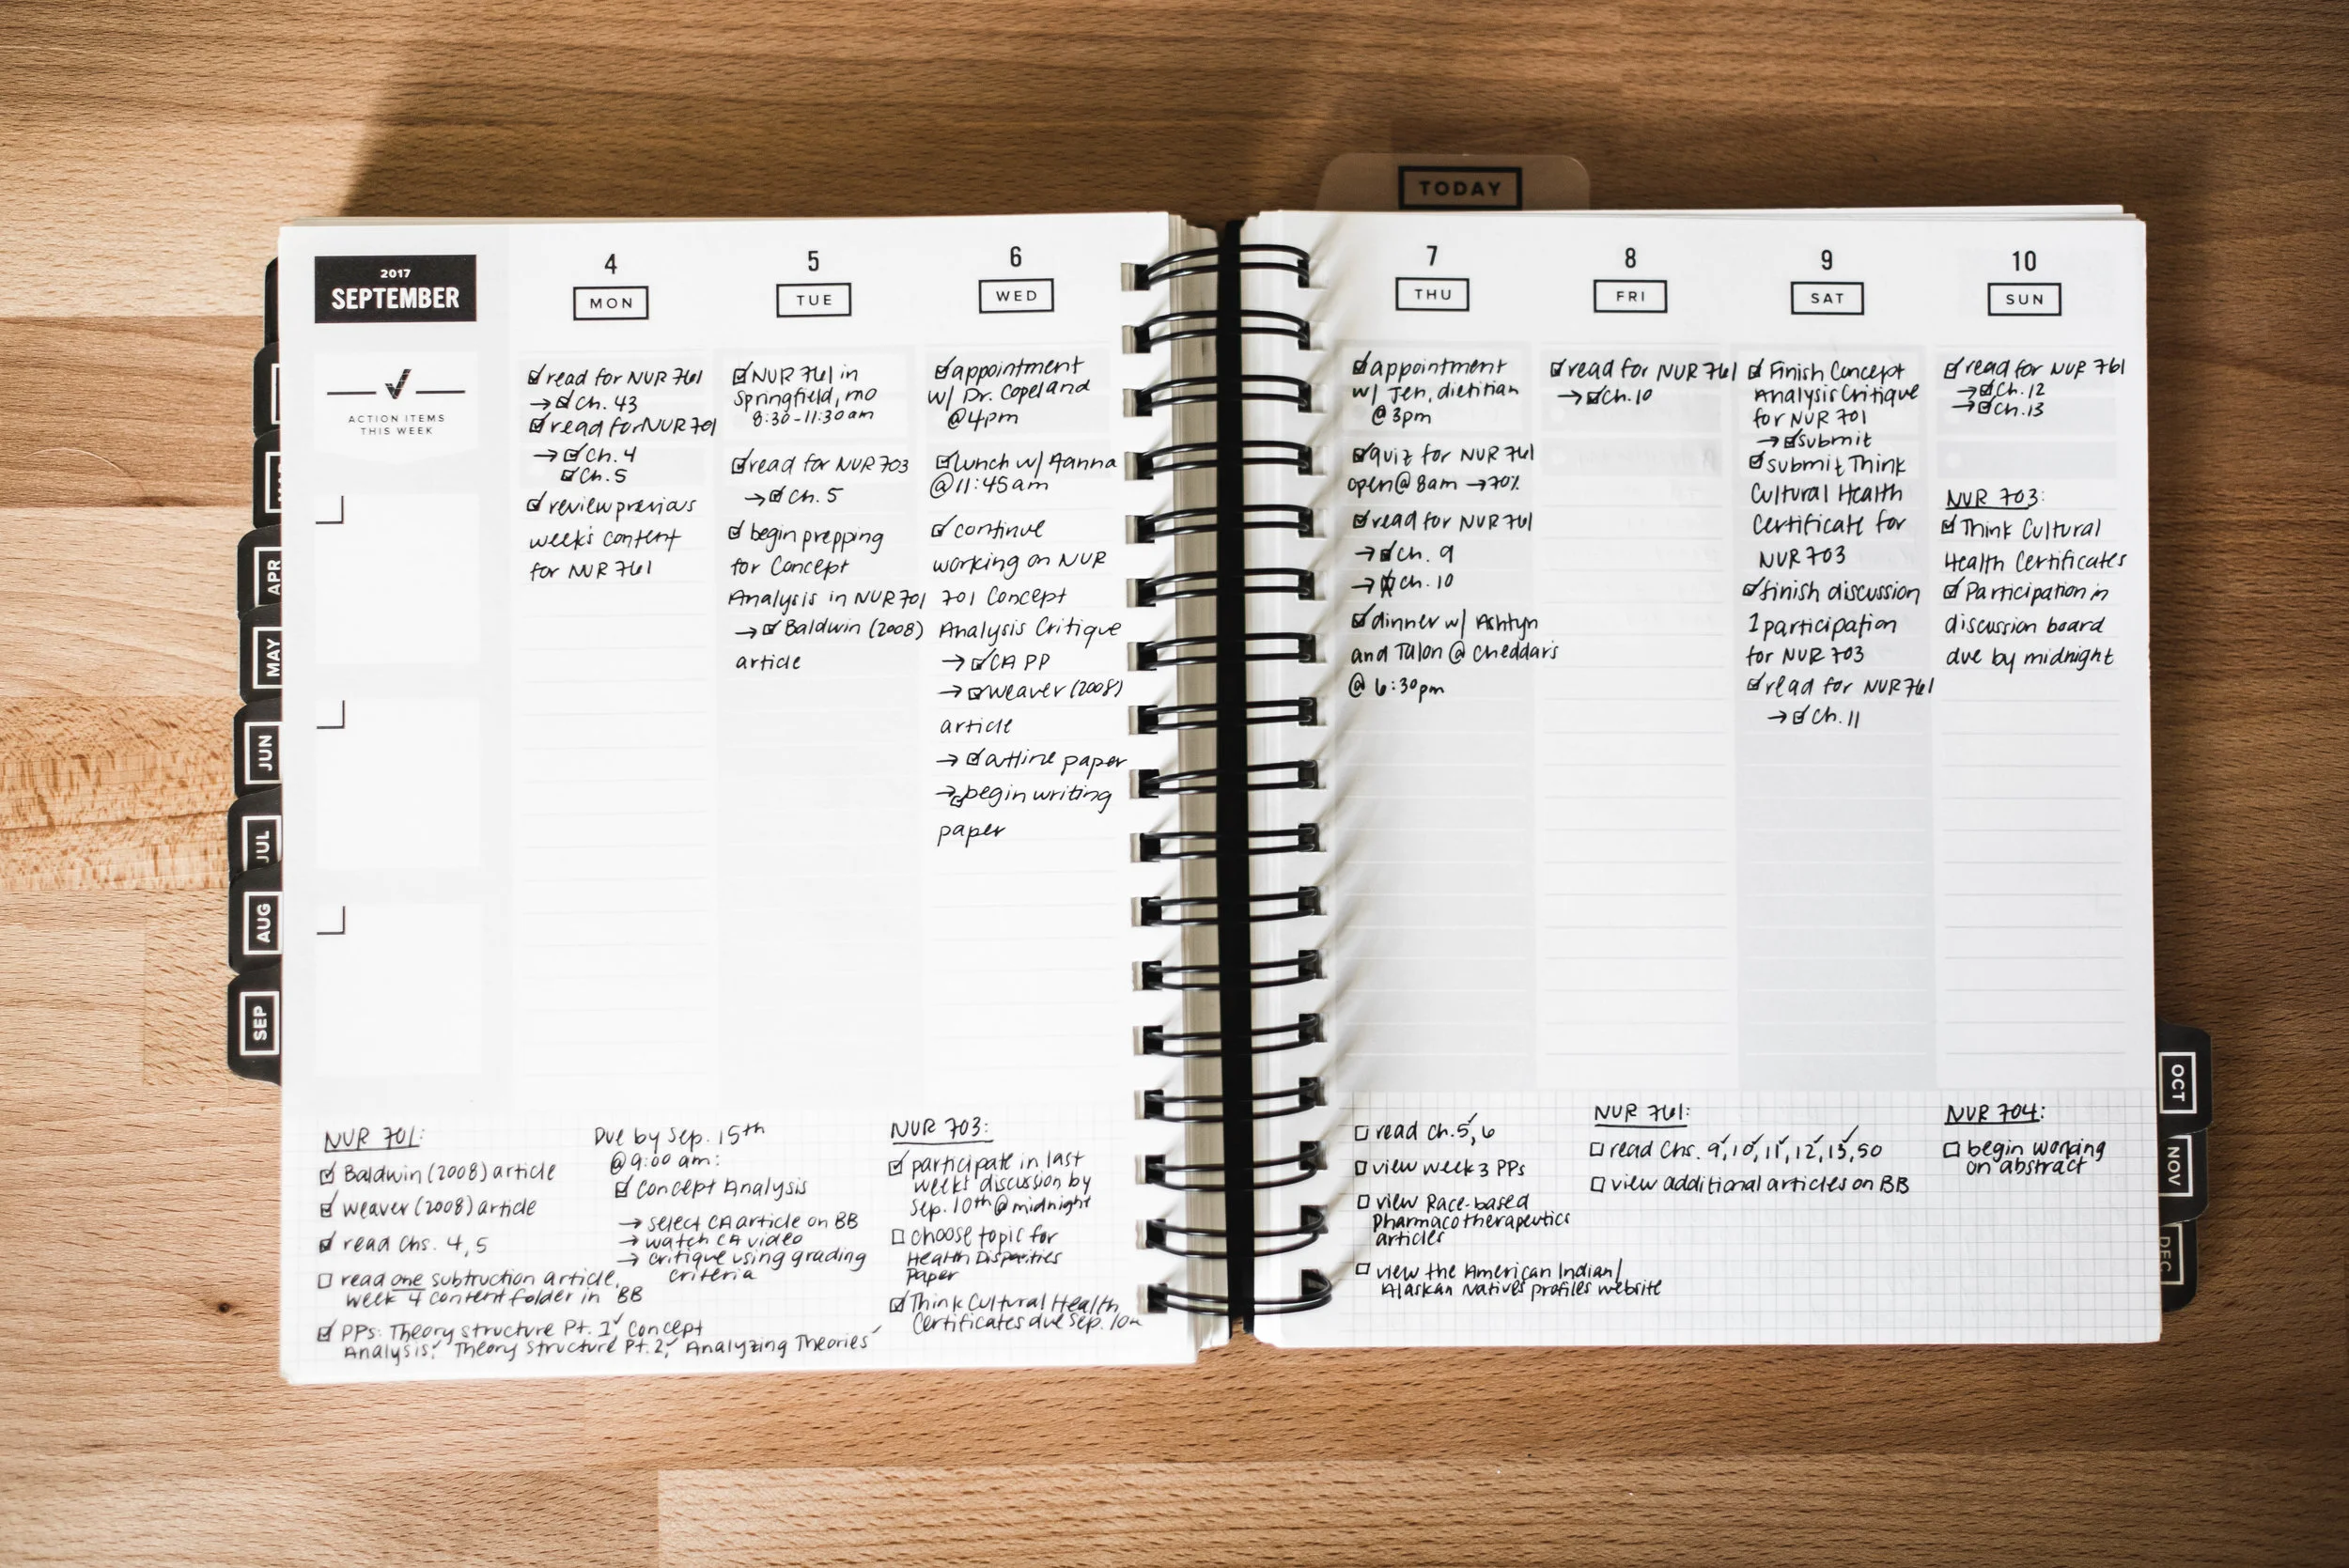 TODAY
2017
SEPTEMBER
ACTION ITEMS
THIS WEEK
4
MON
read for NUR 761
→ Ch. 43
read for NUR 701
→ Ch. 4
Ch. 5
review previous
week's content
for NUR 761
5
TUE
NUR 761 in
Springfield, mo
8:30-11:30am
read for NUR 703
→ Ch. 5
begin prepping
for Concept
Analysis in NUR 701
→ Baldwin (2008)
article
6
WED
appointment
w/ Dr. Copeland
@4pm
lunch w/ Aanna
@11:45am
continue
working on NUR
701 Concept
Analysis Critique
→ CA PP
→ Weaver (2008)
article
→ outline paper
→ begin writing
paper
7
THU
appointment
w/ Jen, dietitian
@3pm
quiz for NUR 761
open@ 8am → 70%
read for NUR 761
→ Ch. 9
→ Ch. 10
dinner w/ Ashtyn
and Talon @ cheddar's
@ 6:30pm
8
FRI
read for NUR 761
→ Ch. 10
9
SAT
Finish Concept
Analysis Critique
for NUR 701
→ submit
submit Think
Cultural Health
Certificate for
NUR 703
finish discussion
1 participation
for NUR 703
read for NUR 761
→ Ch. 11
10
SUN
read for NUR 761
→ Ch. 12
→ Ch. 13
NUR 703:
Think Cultural
Health Certificates
Participation in
discussion board
due by midnight
NUR 701:
Baldwin (2008) article
Weaver (2008) article
read Chs. 4, 5
read one subtruction article,
week 4 content folder in BB
PPs: Theory Structure Pt. 1, Concept
Analysis, Theory Structure Pt. 2, Analyzing Theories
Due by Sep. 15th
@9:00 am:
Concept Analysis
→ select CA article on BB
→ watch CA video
→ critique using grading
criteria
NUR 703:
participate in last
week's discussion by
Sep. 10th @ midnight
choose topic for
Health Disparities
Paper
Think Cultural Health
Certificates due Sep. 10th
read Ch. 5, 6
view week 3 PPs
view Race-based
Pharmacotherapeutics
articles
view the American Indian/
Alaskan Natives profiles website
NUR 761:
read Chs. 9, 10, 11, 12, 13, 50
view additional articles on BB
NUR 704:
begin working
on abstract
APR
MAY
JUN
JUL
AUG
SEP
OCT
NOV
DEC